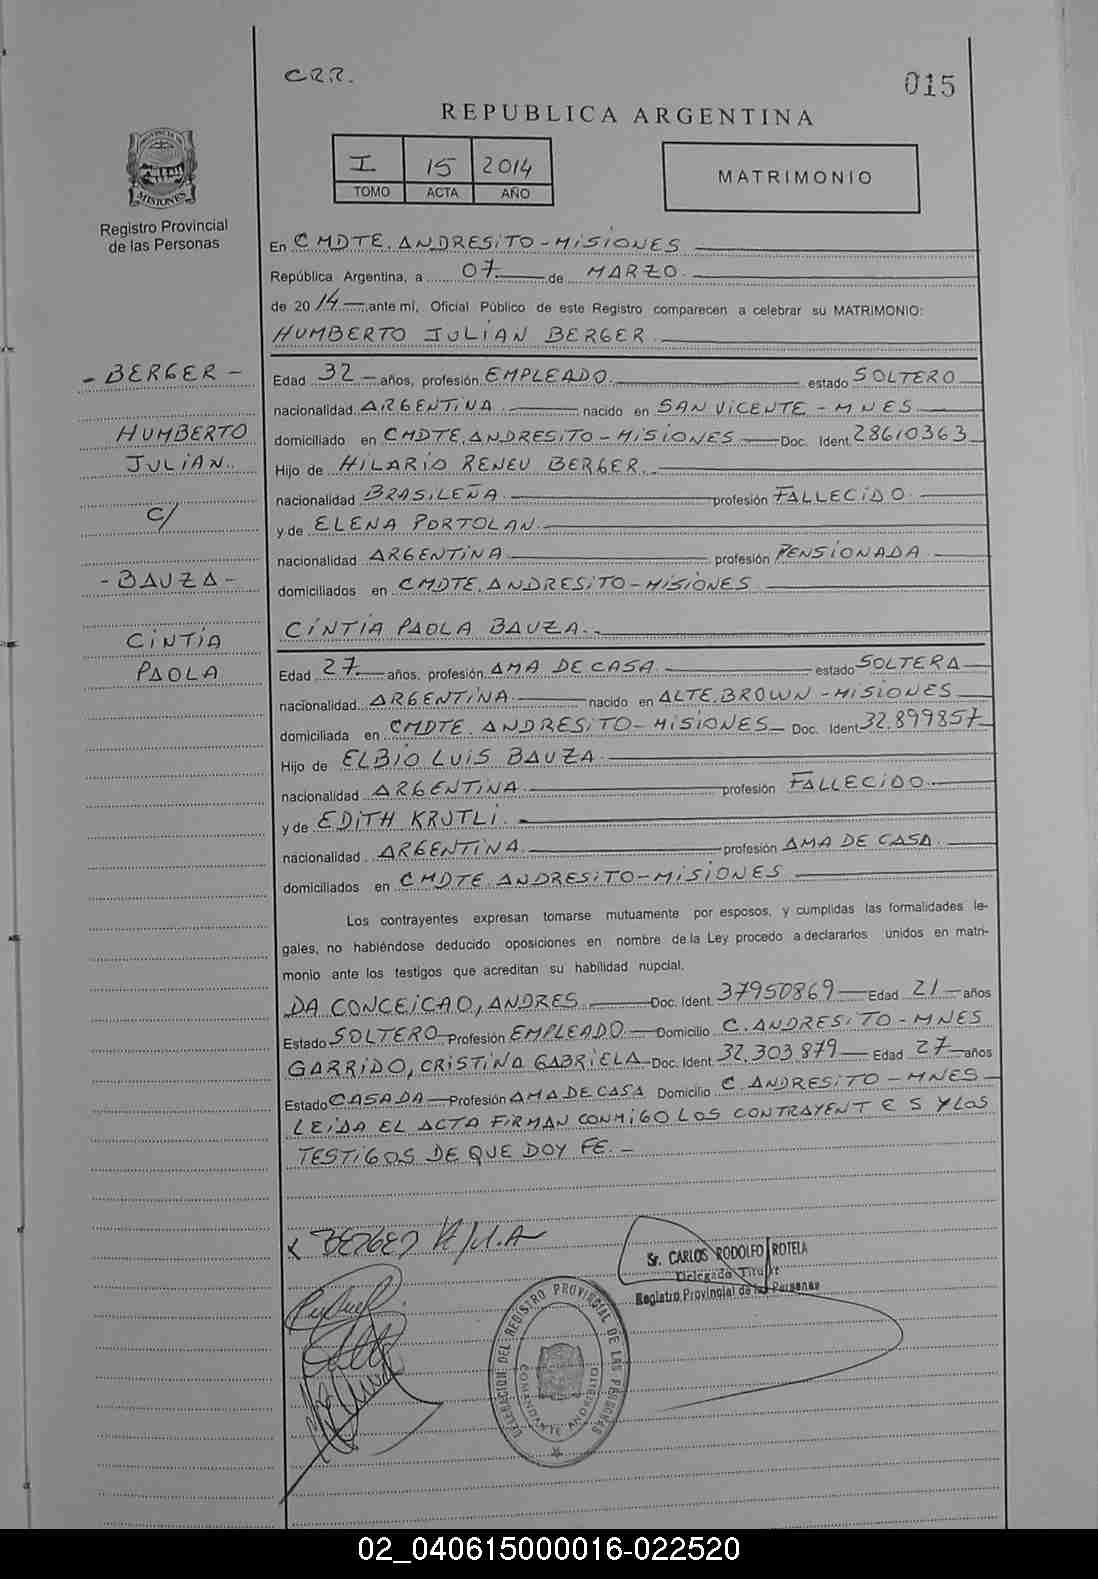 C.R.R.
015
REPUBLICA ARGENTINA
I 15 2014
TOMO ACTA AÑO
MATRIMONIO
PROVINCIA DE MISIONES
Registro Provincial
de las Personas
En CMDTE. ANDRESITO - MISIONES
República Argentina, a 07 de MARZO
de 2014 ante mí, Oficial Público de este Registro comparecen a celebrar su MATRIMONIO:
HUMBERTO JULIAN BERGER
- BERGER -
HUMBERTO
JULIAN.
C/
- BAUZA -
CINTIA
PAOLA
Edad 32 años, profesión EMPLEADO estado SOLTERO
nacionalidad ARGENTINA nacido en SAN VICENTE - MNES
domiciliado en CMDTE. ANDRESITO - MISIONES Doc. Ident. 28610363
Hijo de HILARIO RENEU BERGER
nacionalidad BRASILEÑA profesión FALLECIDO
y de ELENA PORTOLAN
nacionalidad ARGENTINA profesión PENSIONADA
domiciliados en CMDTE. ANDRESITO - MISIONES
CINTIA PAOLA BAUZA
Edad 27 años, profesión AMA DE CASA estado SOLTERA
nacionalidad ARGENTINA nacido en ALTE. BROWN - MISIONES
domiciliada en CMDTE. ANDRESITO - MISIONES Doc. Ident. 32.899857
Hijo de ELBIO LUIS BAUZA
nacionalidad ARGENTINA profesión FALLECIDO
y de EDITH KRUTLI
nacionalidad ARGENTINA profesión AMA DE CASA
domiciliados en CMDTE ANDRESITO - MISIONES
Los contrayentes expresan tomarse mutuamente por esposos, y cumplidas las formalidades le-
gales, no habiéndose deducido oposiciones en nombre de la Ley procedo a declararlos unidos en matri-
monio ante los testigos que acreditan su habilidad nupcial.
DA CONCEICAO, ANDRES Doc. Ident. 37950869 Edad 21 años
Estado SOLTERO Profesión EMPLEADO Domicilio C. ANDRESITO - MNES
GARRIDO, CRISTINA GABRIELA Doc. Ident. 32.303.879 Edad 27 años
Estado CASADA Profesión AMA DE CASA Domicilio C. ANDRESITO - MNES
LEIDA EL ACTA FIRMAN CONMIGO LOS CONTRAYENTES Y LOS
TESTIGOS DE QUE DOY FE. -
Sr. CARLOS RODOLFO ROTELA
Delegado Titular
Registro Provincial de las Personas
DELEGACION DEL REGISTRO PROVINCIAL DE LAS PERSONAS
COMANDANTE ANDRESITO
02_040615000016-022520